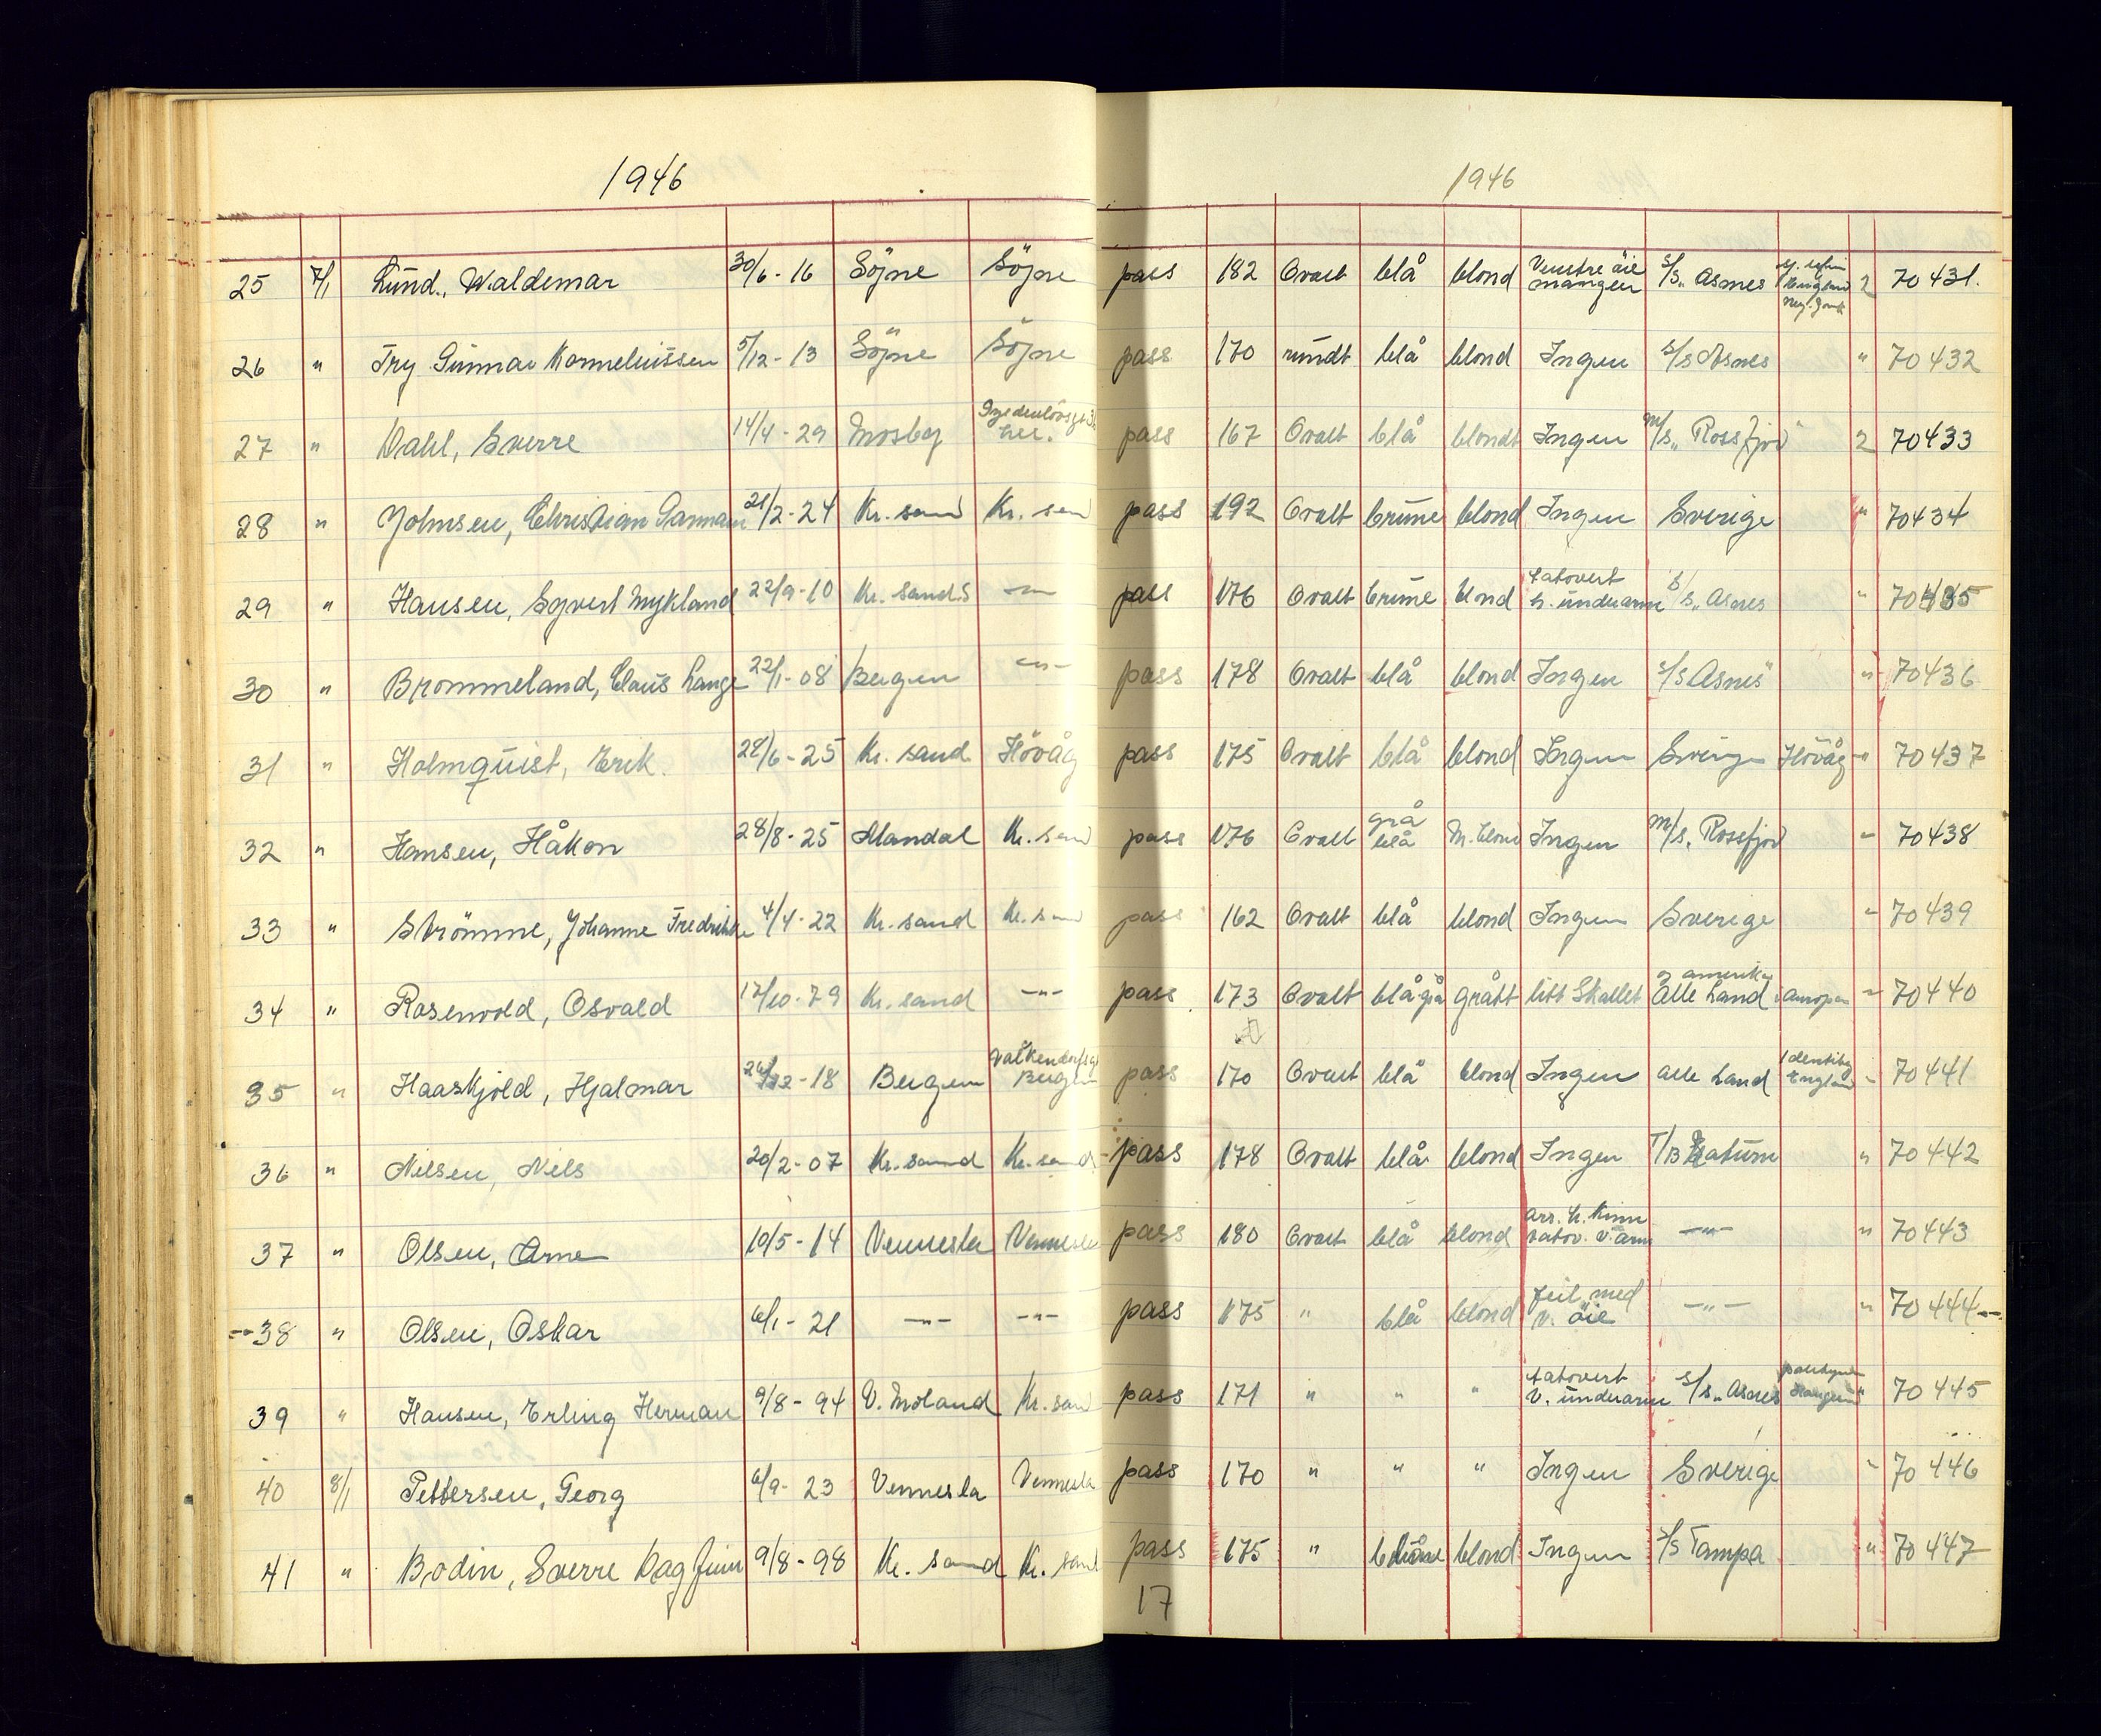 1946 1946
25 7/1 Lund, Waldemar 30/6-16 Söjne Söjne pass 182 Ovalt blå blond Venstre öie mangler s/s „Asnes England 2 70431.
26 " Try Gunnar Korneliussen 5/12-13 Söjne Söjne pass 170 rundt blå blond Ingen s/s Asnes " 70432
27 " Dahl, Sverre 14/4-29 Mosby her. pass 167 Ovalt blå blondt Ingen m/s „Rossfjord" 2 70433
28 " Johnsen, Christian Garmann 21/2-24 Kr. sand Kr. san pass 192 Ovalt brune blond Ingen Sverige " 70434
29 " Hansen, Syvert Mykland 22/9-10 Kr. sand S —"— pass 176 Ovalt brune blond tatovert h. underarm s/s „Asnes " 70435
30 " Brommeland, Claus Lange 22/1-08 Bergen —"— pass 178 Ovalt blå blond Ingen s/s Asnes" " 70436
31 " Holmquist, Erik. 28/6-25 Kr. sand Hövåg pass 175 Ovalt blå blond Ingen Sverige Hövåg " 70437
32 " Hansen, Håkon 28/8-25 Mandal Kr. sand pass 176 Ovalt grå blå M. blond Ingen m/s. Rossfjord " 70438
33 " Strömme, Johanne Fredrikke 4/4-22 Kr. sand Kr. sand pass 162 Ovalt blå blond Ingen Sverige " 70439
34 " Rosenvold, Osvald 17/10-79 Kr. sand —"— pass 173 Ovalt blågrå grått litt Skallet alle Land i Europa og amerika " 70440
35 " Haaskjold, Hjalmar 26/12-18 Bergen Valkendorfsgt Bergen pass 170 Ovalt blå blond Ingen alle Land England " 70441
36 " Nilsen, Nils 20/2-07 Kr. sand Kr. sand pass 178 Ovalt blå blond Ingen T/B Ratum " 70442
37 " Olsen, Arne 10/5-14 Vennesla Vennesla pass 180 Ovalt blå blond arr. h. kinn tatov. v. arm —"— " 70443
38 " Olsen, Oskar 6/1-21 —"— —"— pass 175 " blå blond feil med v. öie —"— " 70444
39 " Hansen, Erling Herman 9/8-94 V. Moland Kr. sand pass 171 " " " tatovert v. underarm s/s „Asnes " 70445
40 8/1 Pettersen, Georg 6/9-23 Vennesla Vennesla pass 170 " " " Ingen Sverige " 70446
41 " Bodin, Sverre Dagfinn 9/8-98 Kr. sand Kr. sand pass 175 " blond Ingen s/s Tampa " 70447
17